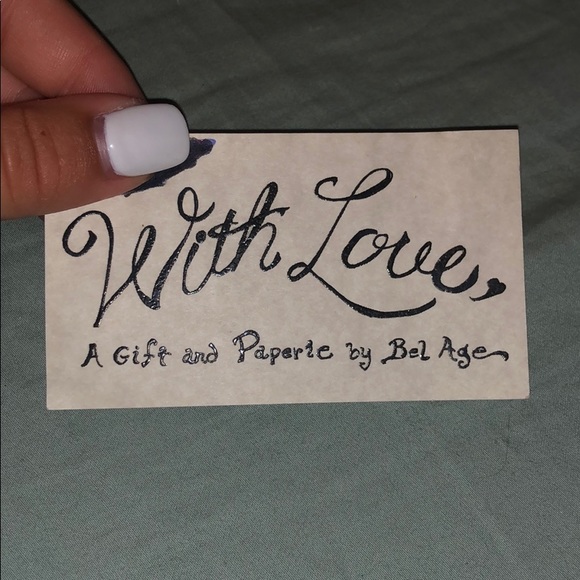 With Love,
A Gift and Paperie by Bel Age